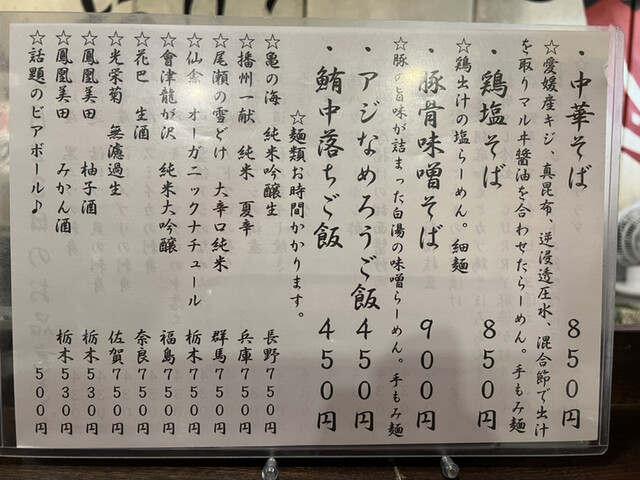 ・中華そば 850円
☆愛媛産キジ、真昆布、逆浸透圧水、混合節で出汁
を取りマルヰ醬油を合わせたらーめん。手もみ麺
・鶏塩そば 850円
☆鶏出汁の塩らーめん。細麺
・豚骨味噌そば 900円
☆豚の旨味が詰まった白湯の味噌らーめん。手もみ麺
・アジなめろうご飯 450円
・鮪中落ちご飯 450円
☆麺類お時間かかります。
☆亀の海 純米吟醸生 長野750円
☆播州一献 純米 夏辛 兵庫750円
☆尾瀬の雪どけ 大辛口純米 群馬750円
☆仙禽 オーガニックナチュール 栃木750円
☆會津龍が沢 純米大吟醸 福島750円
☆花巴 生酒 奈良750円
☆光栄菊 無濾過生 佐賀750円
☆鳳凰美田 柚子酒 栃木530円
☆鳳凰美田 みかん酒 栃木530円
☆話題のビアボール♪ 500円